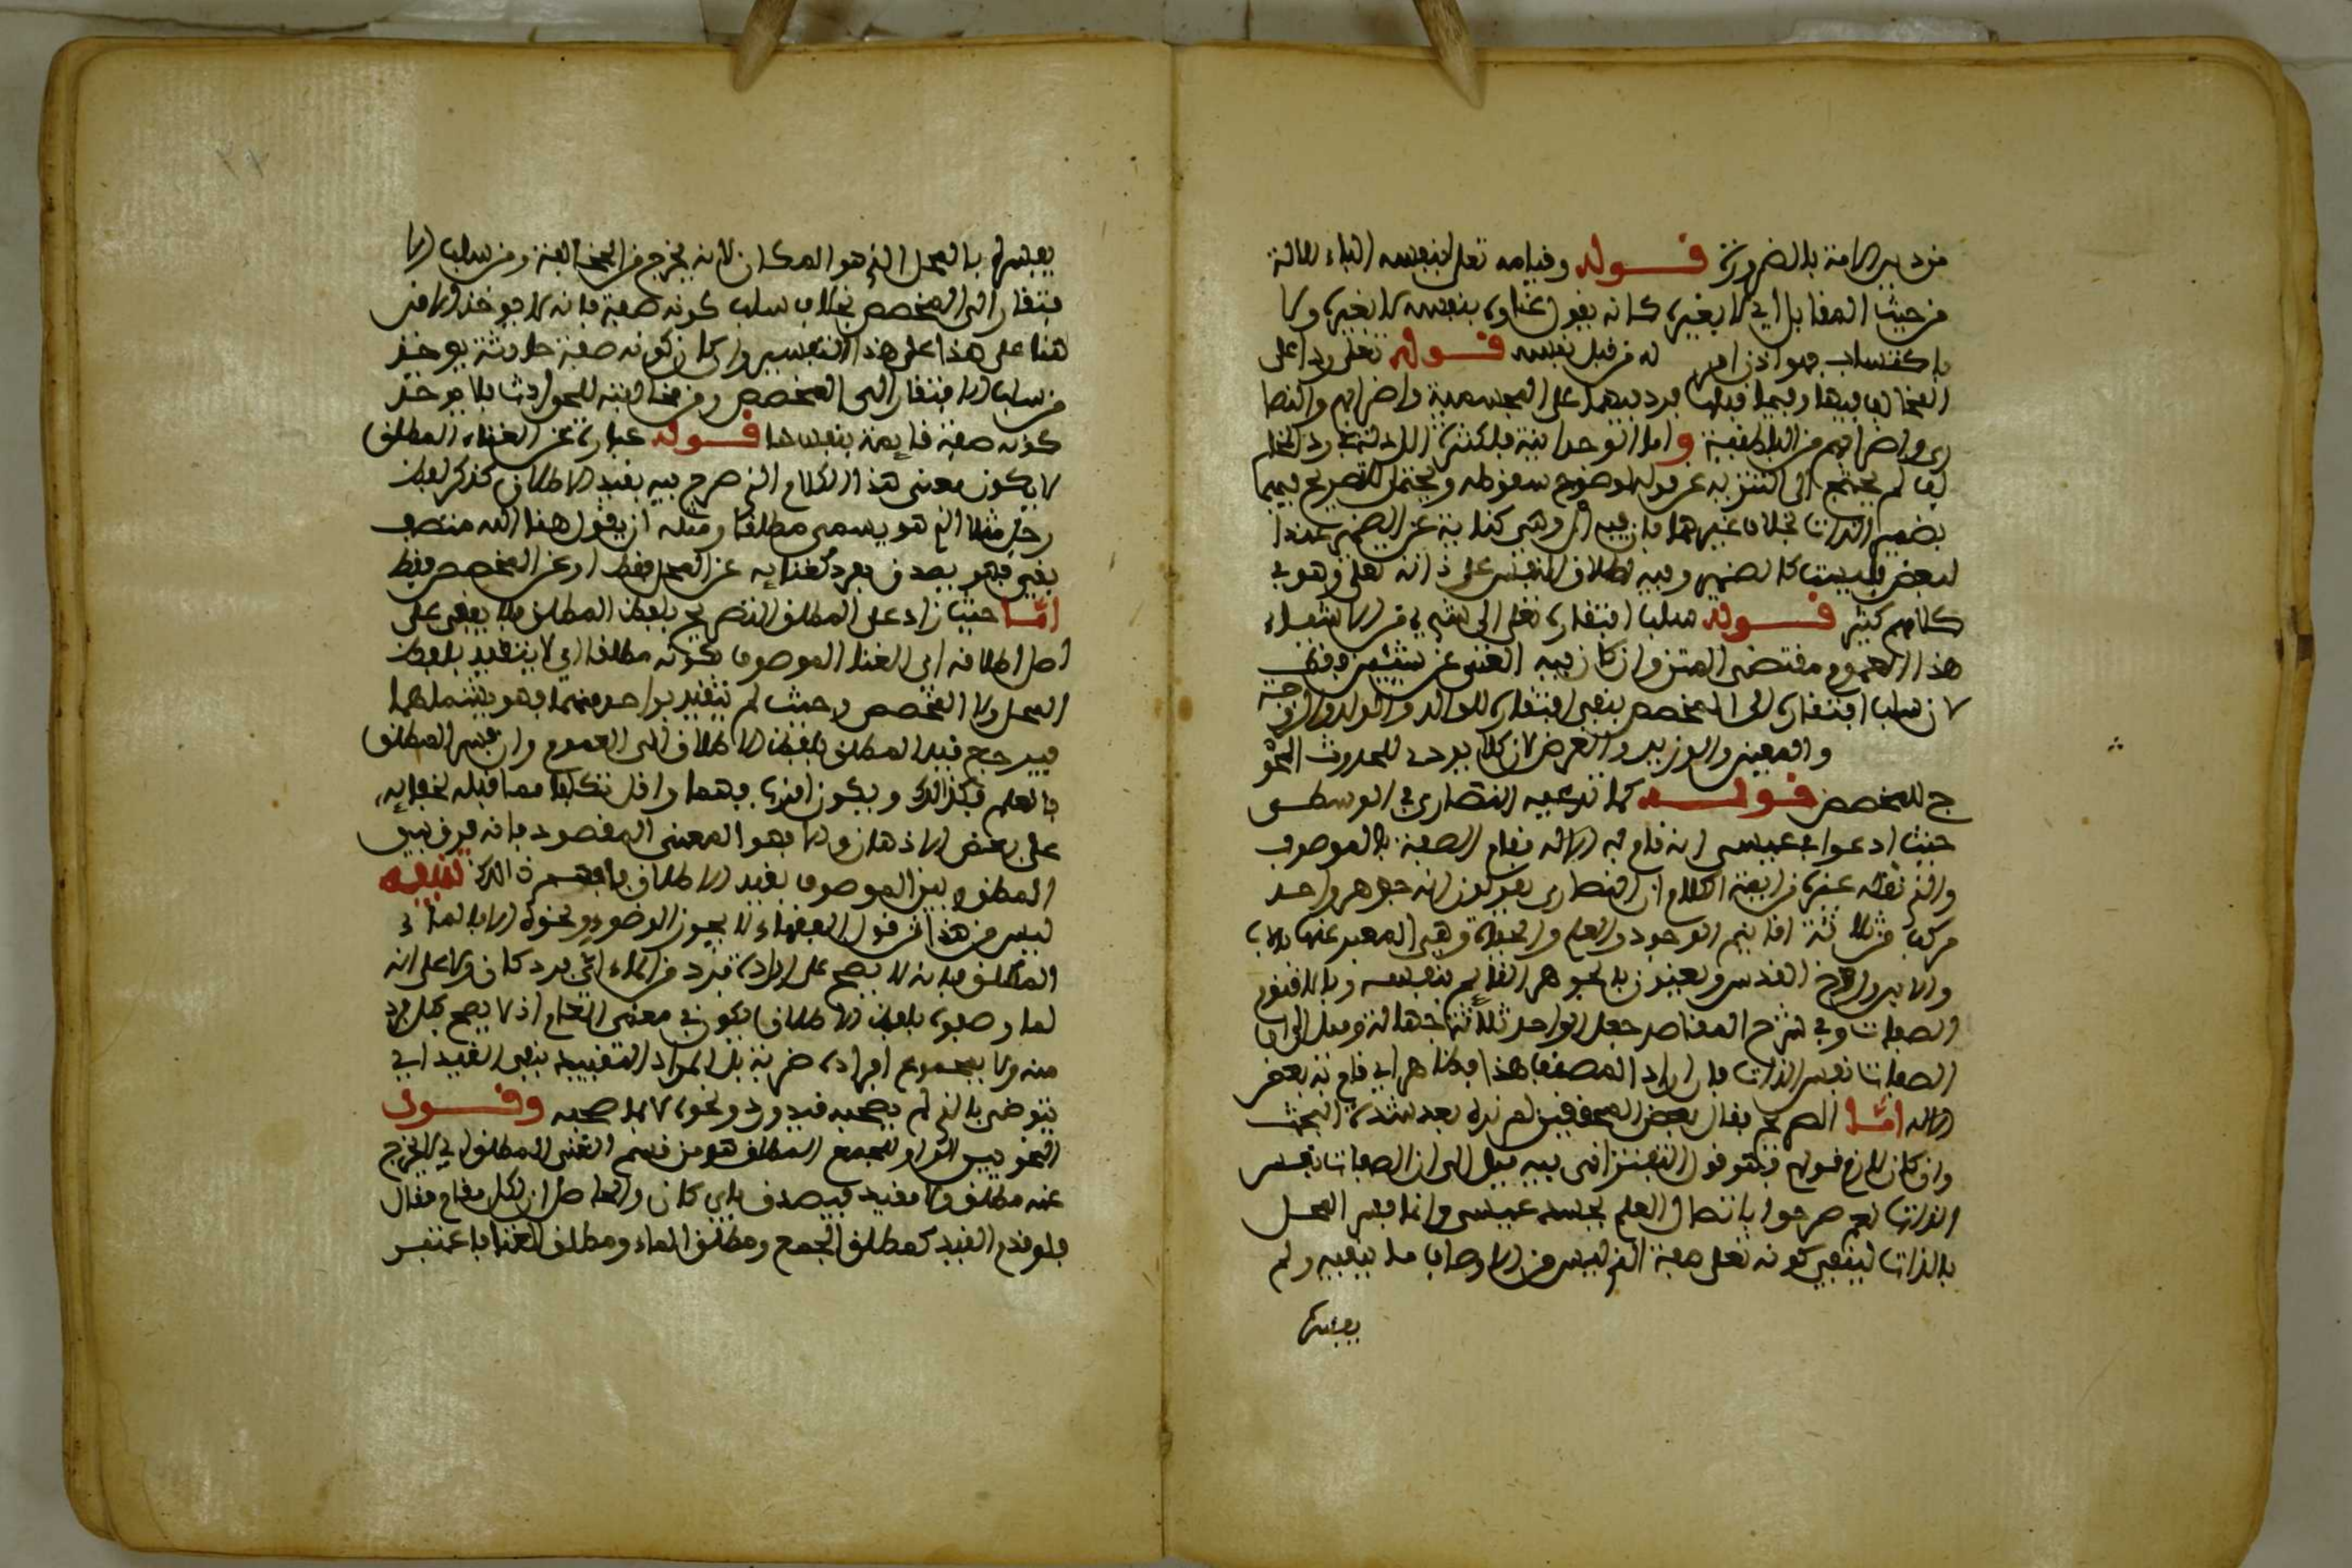 من دبير الامنة بالضرورة قوله وقيامه تعلى بنفسه الباء للالة
من حيث المقابل اي لا بغيره كانه يقول غناوه بنفسه لا بغيره ولا
باكتساب فهو اذن امر له من قبل نفسه قوله تعلى ردا على
المخالف فيها وفيما قبلها فرد بهما على المجسمية واضرابهم والنصا
رى واضرابهم من الباطنية واما الوحدانية فلكثرة الادلة على رد المخا
لف لم يحتج الى التنزيه عن قوله لوضوح سقوطه ويحتمل للتصريح فيهما
بضمير الذات بخلاف غيرهما فان فيه ال وهي كناية عن الضمير عند
البعض فليست كالضمير وفيه اطلاق النفس على ذاته تعلى وهو في
كلامهم كثير قوله سلب افتقاره تعلى الى شيء من الاشياء
هذا العموم مقتضى المتن وان كان فيه الغنى عن شيئين فقط
لان سلب افتقاره الى المخصص ينفي افتقاره للوالد والولد والزوجة
والمعين والوزير والغرض لان كلا يرجع للحدوث المحو
ج للمخصص قوله كما تدعيه النصارى في الوسطى
حيث ادعوا في عيسى انه قام به الاله قيام الصفة بالموصوف
والذي نقله غيره من ايمة الكلام ان النصارى يقولون انه جوهر واحد
مركب من ثلاثة اقانيم الوجود والعلم والحياة وهي المعبر عنها بالاب
والابن وروح القدس ويعنون بالجوهر القايم بنفسه وبالاقنوم
الصفات وفي شرح المقاصد جعل الواحد ثلاثة جهالة وميل الى ان
الصفات نفس الذات فان اراد المصنف هذا فظاهر اي قام به بعض
الاله اما الصريح فقال بعض المحققين لم نره بعد شدة البحث
وان كان لازم قولهم فهو قول التفتزاني فيه ميل الى ان الصفات نفس
الذات نعم صرحوا باتصال العلم بجسد عيسى وانما فسر المحل
بالذات لينفي كونه تعلى صفة الذي ليس من الاوصاف ما ينفيه ولم
يفسره
يفسره بالمحل الذي هو المكان لانه يخرج من المخالفة ومن سلب الا
فتقار الى المخصص بخلاف سلب كونه صفة فانه لا يوخذ الا من
هنا على هذا على هذا التفسير وان كان كونه صفة حادثة يوخذ
من سلب الافتقار الى المخصص ومن مخالفته للحوادث بلا يوخذ
كونه صفة قايمة بنفسها قوله عبارة عن الغناء المطلق
لا يكون معنى هذا الكلام الذي صرح فيه بقيد الاطلاق كذكر لفظ
رجل مثلا الذي هو يسمى مطلقا ومثله ان يقول هنا الله متصف
بغنى فهو يصدق بفرد كغنايه عن المحل فقط او عن المخصص فقط
اما حيث زاد على المطلق التصريح بلفظ المطلق فلا يبقى على
اصل اطلاقه اي الغنا الموصوف بكونه مطلقا اي لا يتقيد بلفظ
المحل ولا المخصص وحيث لم يتقيد بواحد منهما فهو يشملهما
فيرجع قيد المطلق بلفظ الاطلاق الى العموم وان فسر المطلق
بالعام فكذالك ويكون اقرب فهما واقل تكلفا مما قبله لخفايه
على بعض الاذهان والا فهو المعنى المقصود فانه فرق بين
المطلق وبين الموصوف بقيد الاطلاق فافهم ذالك تنبيه
ليس من هذا قول الفقهاء لا يجوز الوضوء ونحوه الا بالماء
المطلق فانه لا يصح على ارادة فرد من الماء اي فرد كان ولا على انه
لما وصفوه بلفظ الاطلاق يكون في معنى العام اذ لا يصح بكل فرد
منه ولا بمجموع افراده ضربة بل المراد التقييد بنفي القيد اي
يتوضى بالذي لم يصحبه قيد ورد ونحوه لا بما صحبه وقول
النحويين الواو للجمع المطلق هو من قسم الغنى المطلق اي لا يخرج
عنه مطلق ولا مقيد فيصدق باي كان والحاصل ان لكل مقام مقال
فلو قدم القيد كمطلق الجمع ومطلق الماء ومطلق الغنا باعتبر